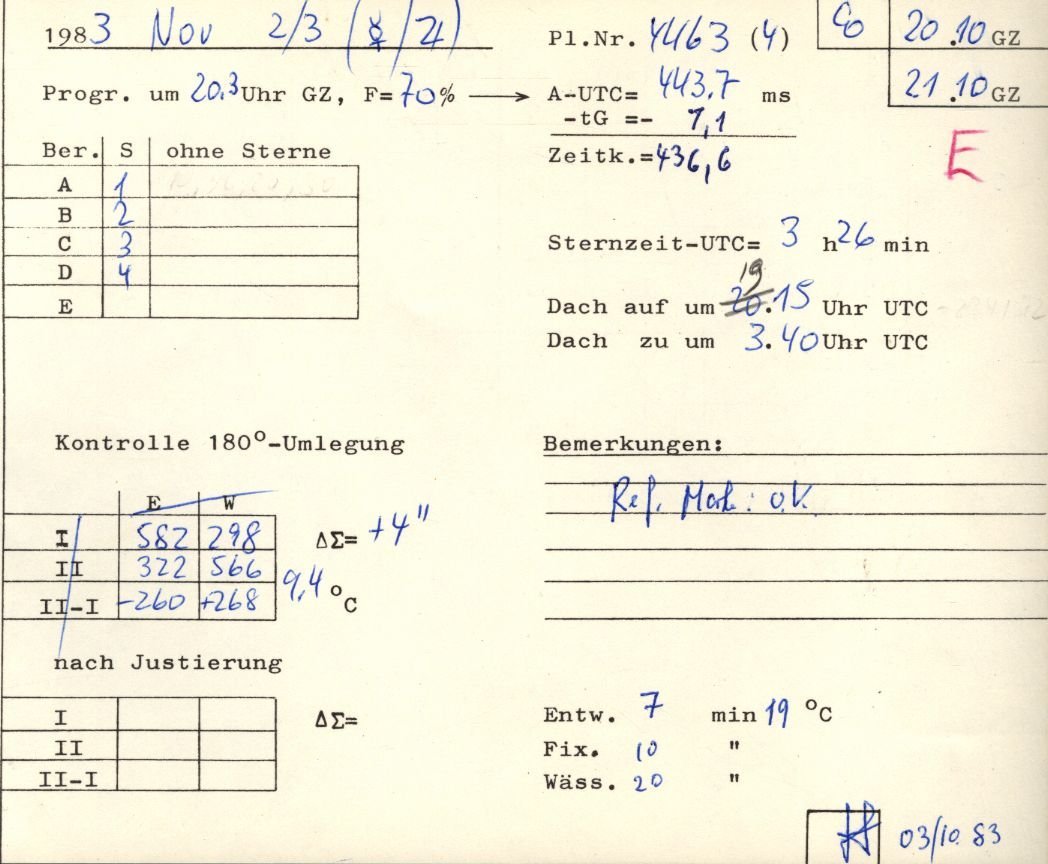 1983 Nov 2/3 (☿/♃)
Pl.Nr. 4463 (4)
20.10 GZ
21.10 GZ
Progr. um 20.3 Uhr GZ, F= 70% ⟶ A-UTC= 443.7 ms
-tG =- 7,1
Zeitk.=436,6
E
Ber. S ohne Sterne
A 1
B 2
C 3
D 4
E
Sternzeit-UTC= 3 h 26 min
Dach auf um 20 19.15 Uhr UTC
Dach zu um 3.40 Uhr UTC
Kontrolle 180°-Umlegung
E W
I 582 298 ΔΣ= +4"
II 322 566
II-I -260 +268 9,4 °C
nach Justierung
I ΔΣ=
II
II-I
Bemerkungen:
Ref. Mark: o.K.
Entw. 7 min 19 °C
Fix. 10 "
Wäss. 20 "
03/10 83